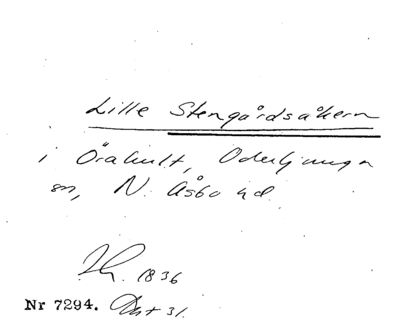 Lille Stengårdsåkern
i Örahult, Oderljunga
sn, N. Åsbo hd.
1836
Nr 7294. Akt 31.